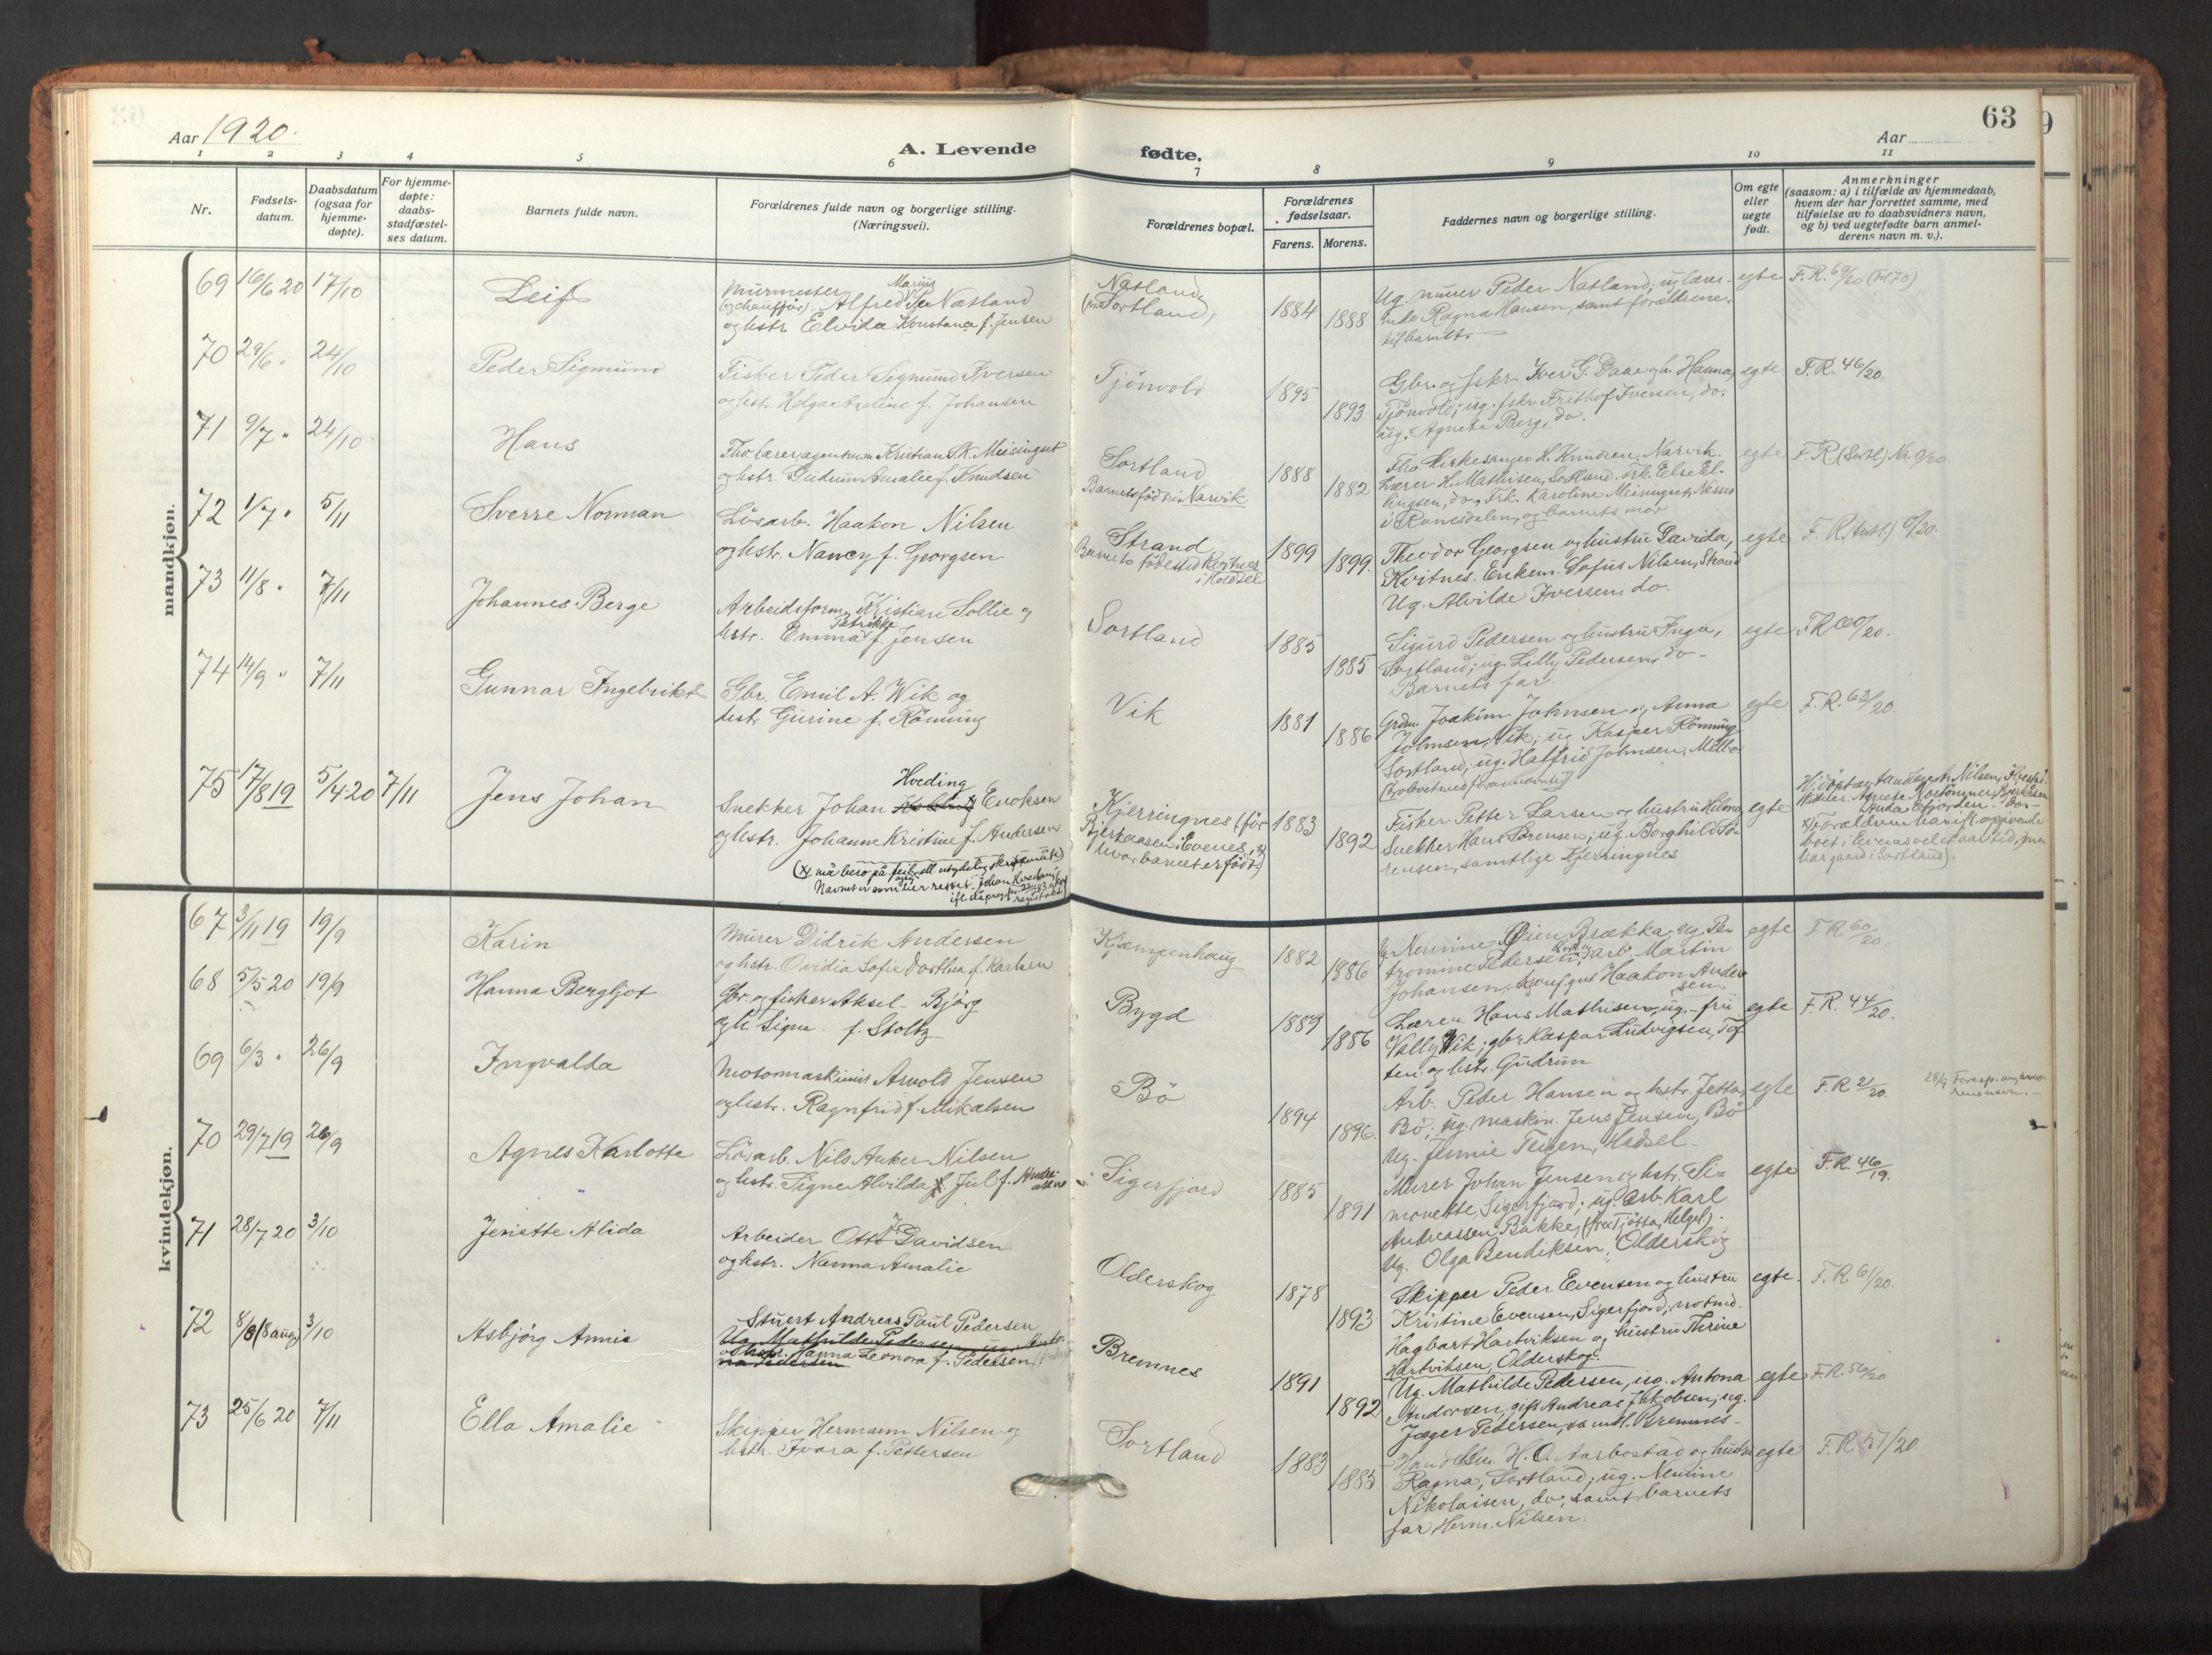 Aar 1920.
A. Levende fødte.
Aar
63
1 2 3 4 5 6 7 8 9 10 11
Nr.
Fødsels-
datum.
Daabsdatum
(ogsaa for
hjemme-
døpte).
For hjemme-
døpte:
daabs-
stadfæstel-
ses datum.
Barnets fulde navn.
Forældrenes fulde navn og borgerlige stilling.
(Næringsvei).
Forældrenes bopæl.
Forældrenes
fødselsaar.
Farens. Morens.
Faddernes navn og borgerlige stilling.
Om egte
eller
uegte
født.
Anmerkninger
(saasom: a) i tilfælde av hjemmedaab,
hvem der har forrettet samme, med
tilføielse av to daabsvidners navn,
og b) ved uegtefødte barn anmel-
derens navn m. v.).
mandkjøn.
69 16/6 20 17/10 Leif
Murmester Marius
(og chauffør) Alfred Per Natland
og hstr. Elvida Konstance f. Jensen
Natland
Sortland,
1884 1888
Ug. murer Peder Natland, ug. lærer-
inde Ragna Hansen, samt forældrene
til barnet.
egte F.R. 69/20
70 29/6 " 24/10 Peder Sigmund
Fisker Peder Sigmund Iversen
og hst. Helga Azeline f. Johansen
Tjönvold
1895 1893
Gbr. og fskr. Iver G. Daae og h. Hanna,
Tjönvold; ug. fskr. Frithof Iversen, do.
ug. Agnete Berg, do.
egte F.R. 46/20.
71 9/7 " 24/10 Hans
Fho. lærer, agent m.m. Kristian S.K. Meisingset
og hstr. Gudrun Amalie f. Knudsen
Sortland
Barnet födt i Narvik
1888 1882
Fho. kirkesanger H. Knudsen, Narvik.
Lærer H. Mathisen, Sortland. Frk. Else El-
lingsen, do., Frk. Karoline Meisingset, Nesset
i Romsdalen, og barnets mor
egte F.R. (Sortl.) Nr. 9/20.
72 1/7 " 5/11 Sverre Norman
Lösarb. Haakon Nilsen
og hstr. Nancy f. Georgsen
Strand
Barnets födested Kvitnes
i Hadsel
1899 1899.
Theodor Georgsen og hustru Davida,
Kvitnes. Enkem. Sofus Nilsen, Strand
Ug. Alvilde Iversen, do.
egte
73 11/8 " 7/11 Johannes Berge
Arbeidsform. Kristian Sollie og
hstr. Emma Petrikke f. Jensen
Sortland
1885 1885
Sigurd Pedersen og hustru Inga,
Sortland; ug. Lilly Pedersen, do -
Barnets far.
egte
74 14/9 " 7/11 Gunnar Ingebrikt
Gbr. Emil A. Wik og
hstr. Gurine f. Römung
Vik
1881 1886
Grdm. Joakim Johnsen og Anna
Johnsen, Vik; ug. Kasper Römung
Sortland; ug. Halfrid Johnsen, Melbo
egte F.R. 63/20.
75 17/8 19 5/4 20 7/11 Jens Johan
Hveding
Snekker Johan Enoksen
og hstr. Johanne Kristine f. Andersen
(x må bero på feil ell. utydelig skrivemåte)
Kjerringnes (för
Bjerkaasen i Evenes,
hvor barnet er födt.)
1883 1892
Fisker Petter Larsen og hustru Helma,
Snekker Hans Sörensen; ug. Borghild Sö-
rensen, samtlige Kjerringnes
egte
kvindekjøn.
67 3/11 19 19/9 Karin
Murer Didrik Andersen
og hstr. Ovidia Sofie Dorthea f. Karlsen
Kjæmpenhaug
1882 1886
Nennine Öien, Brækka, ug. Pe-
tromine Pedersen, arb. Martin
Johansen, Haakon Ander-
sen
egte F.R. 60/20.
68 5/5 20 19/9 Hanna Bergljot
Gbr. og fisker Aksel Björg
og h. Signe f. Stoltz
Bygd
1889 1886
Lærer Hans Mathisen, ug. fru
Vally Wik; gbr. Kaspar Ludvigsen, Tof-
ten og hstr. Gudrun
egte F.R. 44/20.
69 6/3 " 26/9 Ingvalda
Motormaskinist Arnold Jensen
og hstr. Ragnfrid f. Mikalsen
Bö
1894 1896.
Arb. Peder Hansen og hstr. Jetta,
Bö; ug. maskin. Jens Jensen, Bö
ug. Jennie Teigen, Hadsel.
egte F.R. 2/20.
70 29/7 19 26/9 Agnes Karlotte
Lösarb. Nils Anker Nilsen
og hstr. Signe Alvilda Jul f.
Sigerfjord
1885 1891
Murer Johan Jensen og hstr. Si-
monette, Sigerfjord; ug. arb. Karl
Andreassen Bakke, (fra Tjötta, Helgel.).
Ug. Olga Bendiksen, Olderskog
egte F.R. 46/19.
71 28/7 20 3/10 Jenette Alida
Arbeider Otto J. Davidsen
og hstr. Nanna Amalie
Olderskog
1878 1893
Skipper Peder Evensen og hustru
Kristine Evensen, Sigerfjord; notmd.
Hagbart Hartviksen og hustru Thrine
Hartviksen, Olderskog.
egte. F.R. 61/20.
72 8/8 (8 aug) 3/10 Asbjörg Annie
Stuert Andreas Paul Pedersen
og hstr. Hanna Leonora f. Pedersen
Bremnes
1891 1892
Ug. Mathilde Pedersen, ug. Antona
Andersen, gift Andreas Jakobsen, ug.
Jæger Pedersen, samtl. Bremnes -
egte F.R. 56/20
73 25/6 20 7/11 Ella Amalie
Skipper Hermann Nilsen og
hstr. Ivara f. Pettersen
Sortland
1883 1885
Handelsm. H. O. Aarbostad og hustru
Ragna, Sortland; ug. Nennine
Nikolaisen, do; samt barnets
far Herm. Nilsen.
egte F.R. 57/20